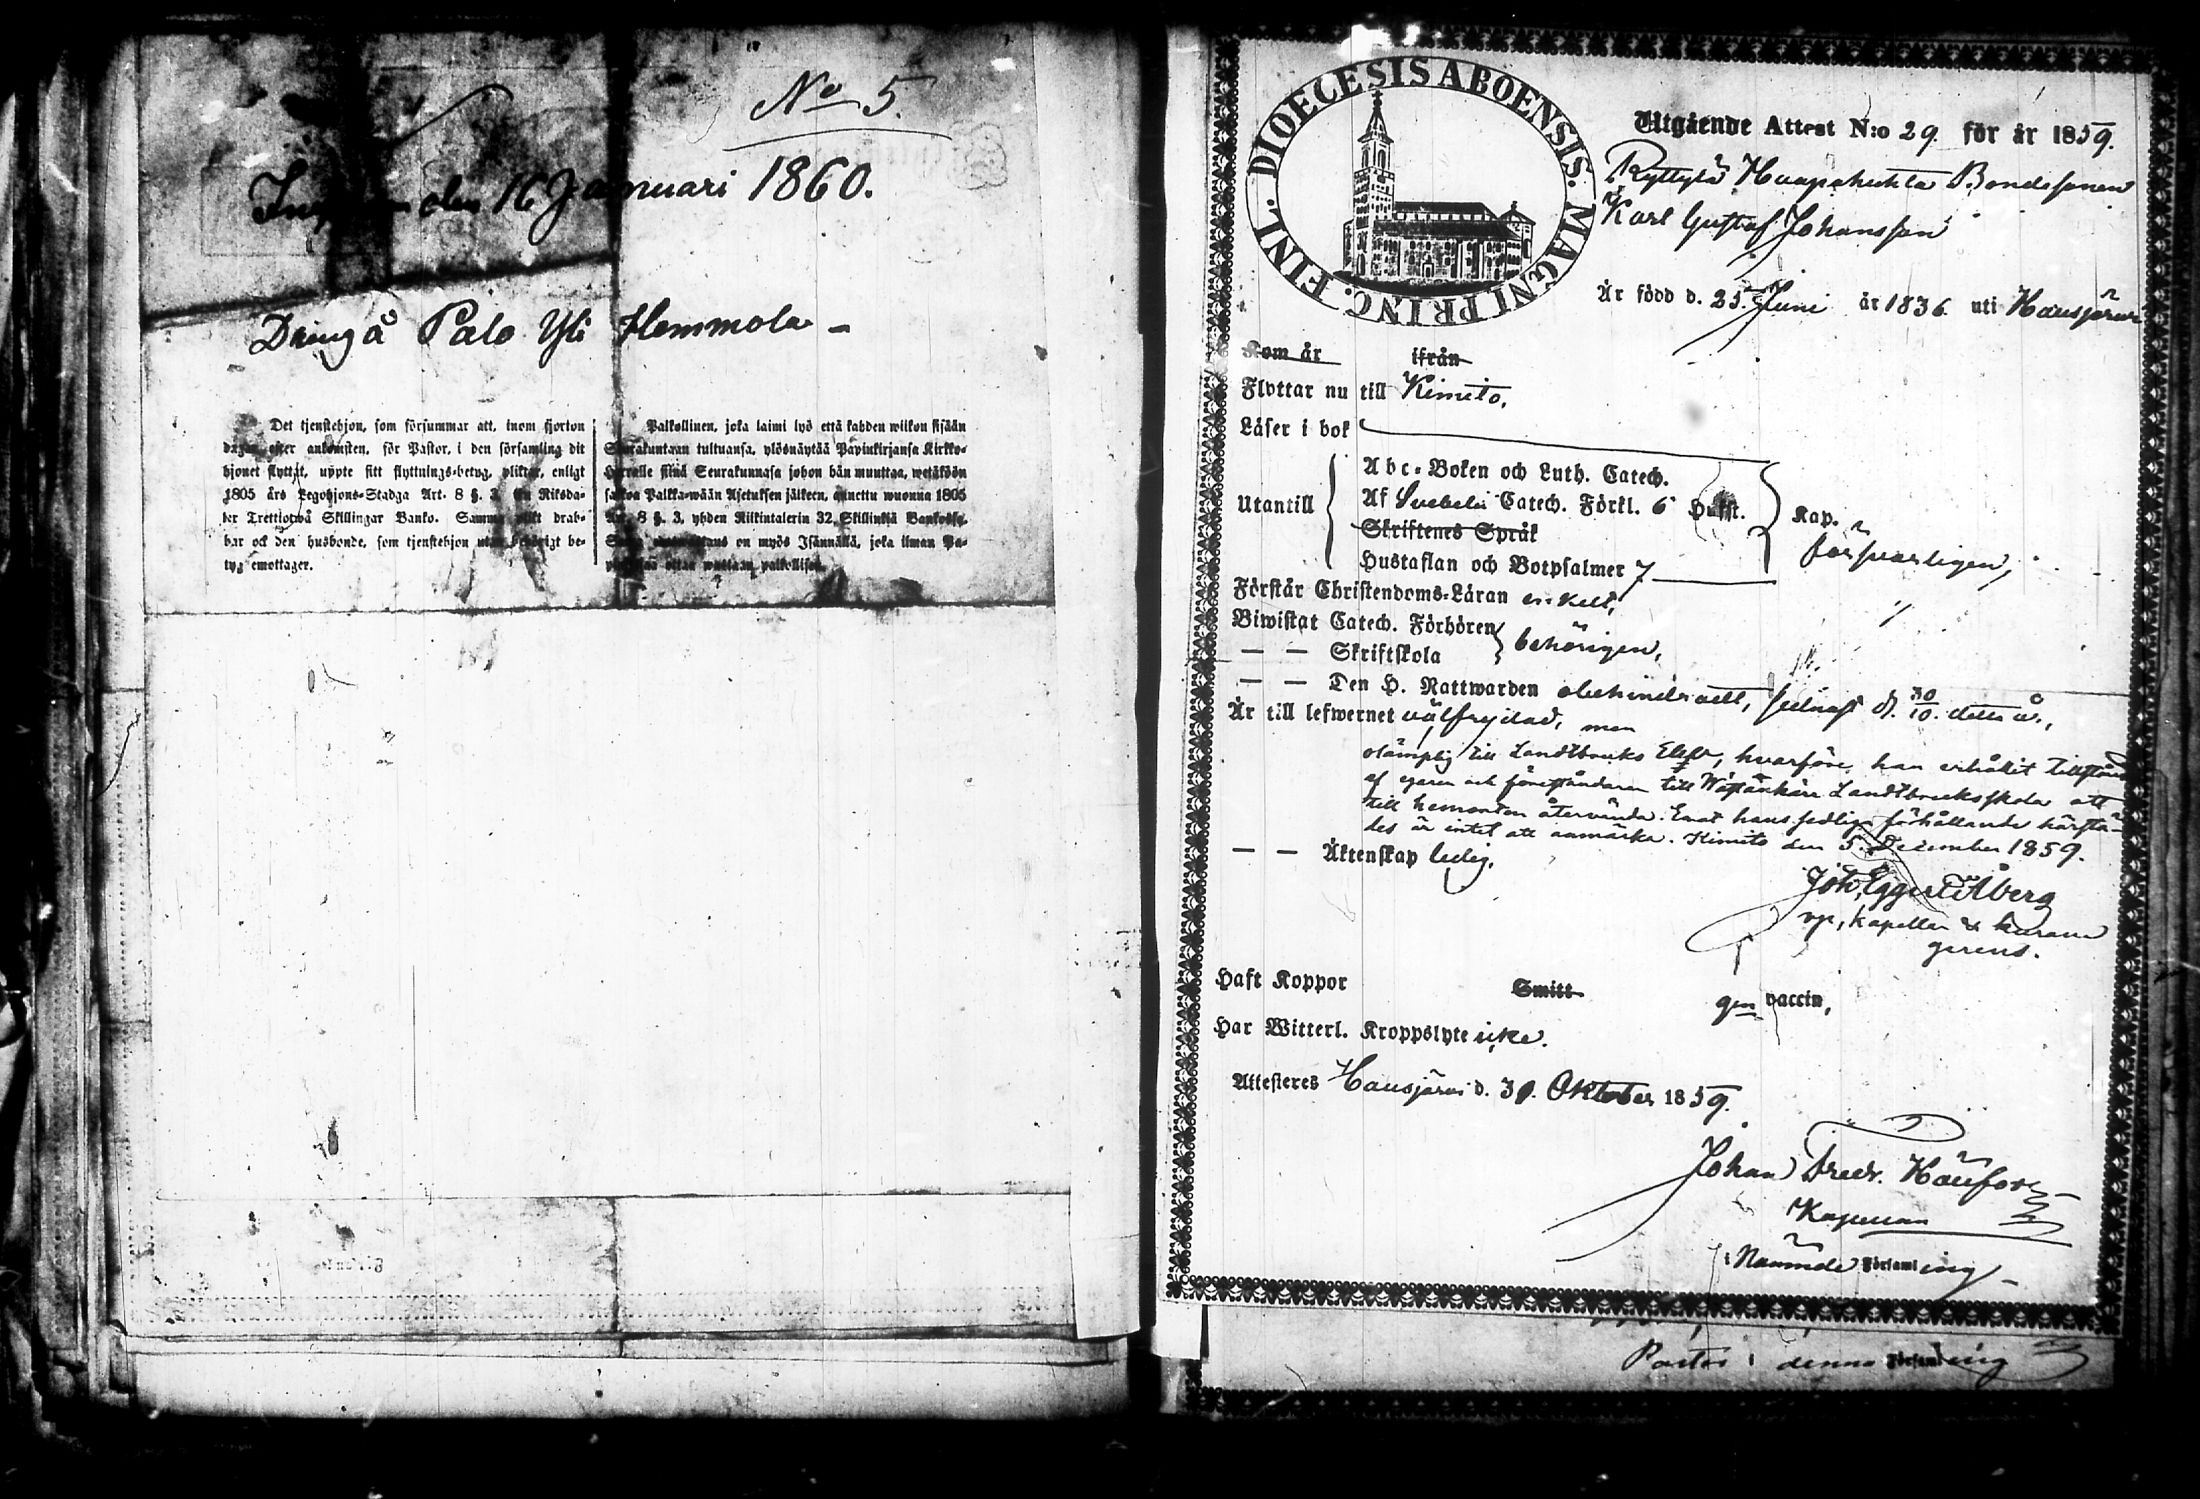 No 5.
den 16 Januari 1860.
Dräng å Palo Yli Hemmola -
Det tjenstehjon, som försummar att, inom fjorton
dagar efter ankomsten, för Pastor, i den församling dit
hjonet flyttat, uppte sitt flyttnings-betyg, pliktar, enligt
1805 års Legohjons-Stadga Art. 8 §. 3, en Riksda-
ler Trettiotwå Skillingar Banko. Samma plikt drab-
bar ock den husbonde, som tjenstehjon utan behörigt be-
tyg emottager.
Palkollinen, joka laimi lyö että kahden wiikon sisään
Seurakuntaan tultuansa, ylösnäyttää Papinkirjansa Kirkko-
Herralle siinä Seurakunnasa johon hän muuttaa, wetäköön
sakkoa Palkka-wään Asetuksen jälkeen, annettu wuonna 1805
Art. 8 §. 3, yhden Riikintalerin 32 Skillinkiä Bankossa.
on myös Isännällä, joka ilman Pa-
ottaa wastaan palkollisen.
DIOECESIS ABOENSIS. MAGNI PRINC. FINL.
Utgående Attest N:o 29. för år 1859.
Ryttylä Haapahuhta Bondesonen
Karl Gustaf Johansson
Är född d. 25. Juni år 1836. uti Hausjärvi
Kom år ifrån
Flyttar nu till Kimito.
Läser i bok
Utantill
Abc-Boken och Luth. Catech.
Af Svebelii Catech. Förkl. 6 Hufst.
Kap.
Skriftenes Språk
försvarligen,
Hustaflan och Botpsalmer 7
Förstår Christendoms-Läran enkelt,
Biwistat Catech. Förhören
behörigen,
— — Skriftskola
— — Den H. Nattwarden obehindradt, sednast d. 30/10. detta år,
Är till lefwernet välfrejdad, men
olämplig till Landtbruks Elev, hvarföre han erhållit tillstånd
af egaren och föreståndaren till Wästankärr Landtbruksskola att
till hemorten återvända. Emot hans sedliga förhållande härstä-
des är intet att anmärka. Kimito den 5. December 1859.
— — Äktenskap ledig.
Joh. Eggert Åberg
vp, kapellan &
gerens.
Haft Koppor Smitt gm vaccin,
Har Witterl. Kroppslyte icke.
Attesteres Hausjärvi d. 30. Oktober 1859.
Johan Fredr.
Kapellan
i Nämnde Församling
Pastor i denna Församling